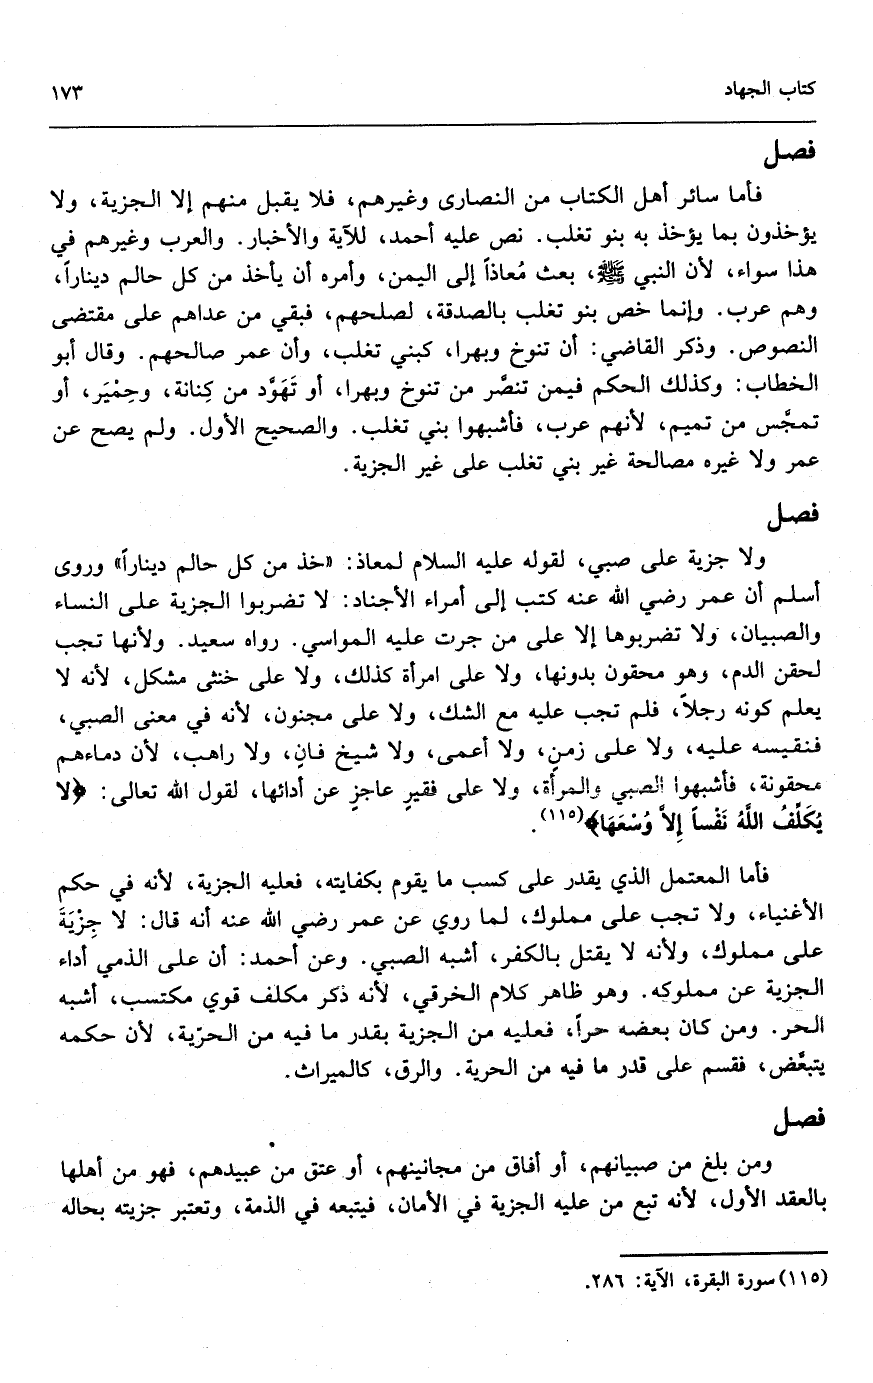 كتاب الجهاد ١٧٣
فصل
فأما سائر أهل الكتاب من النصارى وغيرهم، فلا يقبل منهم إلا الجزية، ولا
يؤخذون بما يؤخذ به بنو تغلب. نص عليه أحمد، للآية والأخبار. والعرب وغيرهم في
هذا سواء، لأن النبي ﷺ، بعث مُعاذاً إلى اليمن، وأمره أن يأخذ من كل حالم ديناراً،
وهم عرب. وإنما خص بنو تغلب بالصدقة، لصلحهم، فبقي من عداهم على مقتضى
النصوص. وذكر القاضي: أن تنوخ وبهرا، كبني تغلب، وأن عمر صالحهم. وقال أبو
الخطاب: وكذلك الحكم فيمن تنصَّر من تنوخ وبهرا، أو تَهَوَّد من كِنانة، وحِمْيَر، أو
تمجَّس من تميم، لأنهم عرب، فأشبهوا بني تغلب. والصحيح الأول. ولم يصح عن
عمر ولا غيره مصالحة غير بني تغلب على غير الجزية.
فصل
ولا جزية على صبي، لقوله عليه السلام لمعاذ: «خذ من كل حالم ديناراً» وروى
أسلم أن عمر رضي الله عنه كتب إلى أمراء الأجناد: لا تضربوا الجزية على النساء
والصبيان، ولا تضربوها إلا على من جرت عليه المواسي. رواه سعيد. ولأنها تجب
لحقن الدم، وهو محقون بدونها، ولا على امرأة كذلك، ولا على خنثى مشكل، لأنه لا
يعلم كونه رجلاً، فلم تجب عليه مع الشك، ولا على مجنون، لأنه في معنى الصبي،
فنقيسه عليه، ولا على زمنٍ، ولا أعمى، ولا شيخ فانٍ، ولا راهب، لأن دماءهم
محقونة، فأشبهوا الصبي والمرأة، ولا على فقيرٍ عاجزٍ عن أدائها، لقول الله تعالى: ﴿لا
يُكَلِّفُ اللَّهُ نَفْساً إِلاَّ وُسْعَهَا﴾(١١٥).
فأما المعتمل الذي يقدر على كسب ما يقوم بكفايته، فعليه الجزية، لأنه في حكم
الأغنياء، ولا تجب على مملوك، لما روي عن عمر رضي الله عنه أنه قال: لا جِزْيَةَ
على مملوك، ولأنه لا يقتل بالكفر، أشبه الصبي. وعن أحمد: أن على الذمي أداء
الجزية عن مملوكه. وهو ظاهر كلام الخرقي، لأنه ذكر مكلف قوي مكتسب، أشبه
الحر. ومن كان بعضه حراً، فعليه من الجزية بقدر ما فيه من الحرّية، لأن حكمه
يتبعَّض، فقسم على قدر ما فيه من الحرية. والرق، كالميراث.
فصل
ومن بلغ من صبيانهم، أو أفاق من مجانينهم، أو عتق من عبيدهم، فهو من أهلها
بالعقد الأول، لأنه تبع من عليه الجزية في الأمان، فيتبعه في الذمة، وتعتبر جزيته بحاله
(١١٥) سورة البقرة، الآية: ٢٨٦.